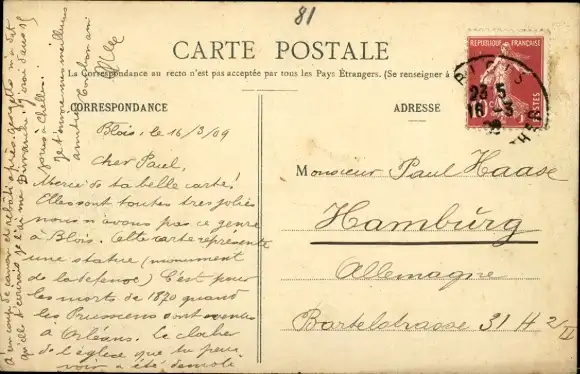 81
CARTE POSTALE
La Correspondance au recto n'est pas acceptée par tous les Pays Étrangers. (Se renseigner à
CORRESPONDANCE
ADRESSE
RÉPUBLIQUE FRANÇAISE
10
POSTES
BLOIS
23 5
16 -3
09
CHER
Blois, le 16/3/09
Cher Paul,
Merci de ta belle carte!
Elles sont toutes tres jolies
nous n'avons pas ce genre
à Blois. Cette carte représente
une statue (monument
de la defense) C'est pour
les morts de 1870 quand
les Prussiens sont venus
à Orléans. Le clocher
de l'église que tu peux
voir a été démoli
à un coup de canon et rebâti après. Georgette m'a dit
qu'elle t'écrirait, je l'ai vue Dimanche
je t'envoie mes meilleurs
amitiés Ton bon ami
Monsieur Paul Haase
Hamburg
Allemagne
Bartelstrasse 31 H 2/II